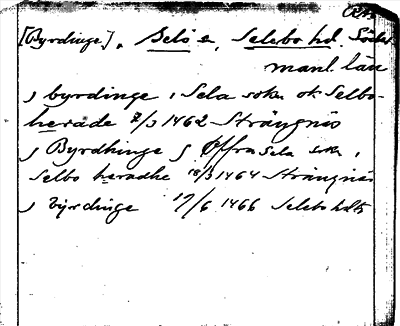 [Byrdinge], Selö s, Selebo hd. Söder
manl. län
j byrdinge i Sela sokn ok Selbo-
herade 2/3 1462 Strängnäs
j Byrdhinge j Øffra Sela sokn,
Selbo heradhe 18/3 1464 Strängnäs
j byrdinge 17/6 1466 Selebo hdts